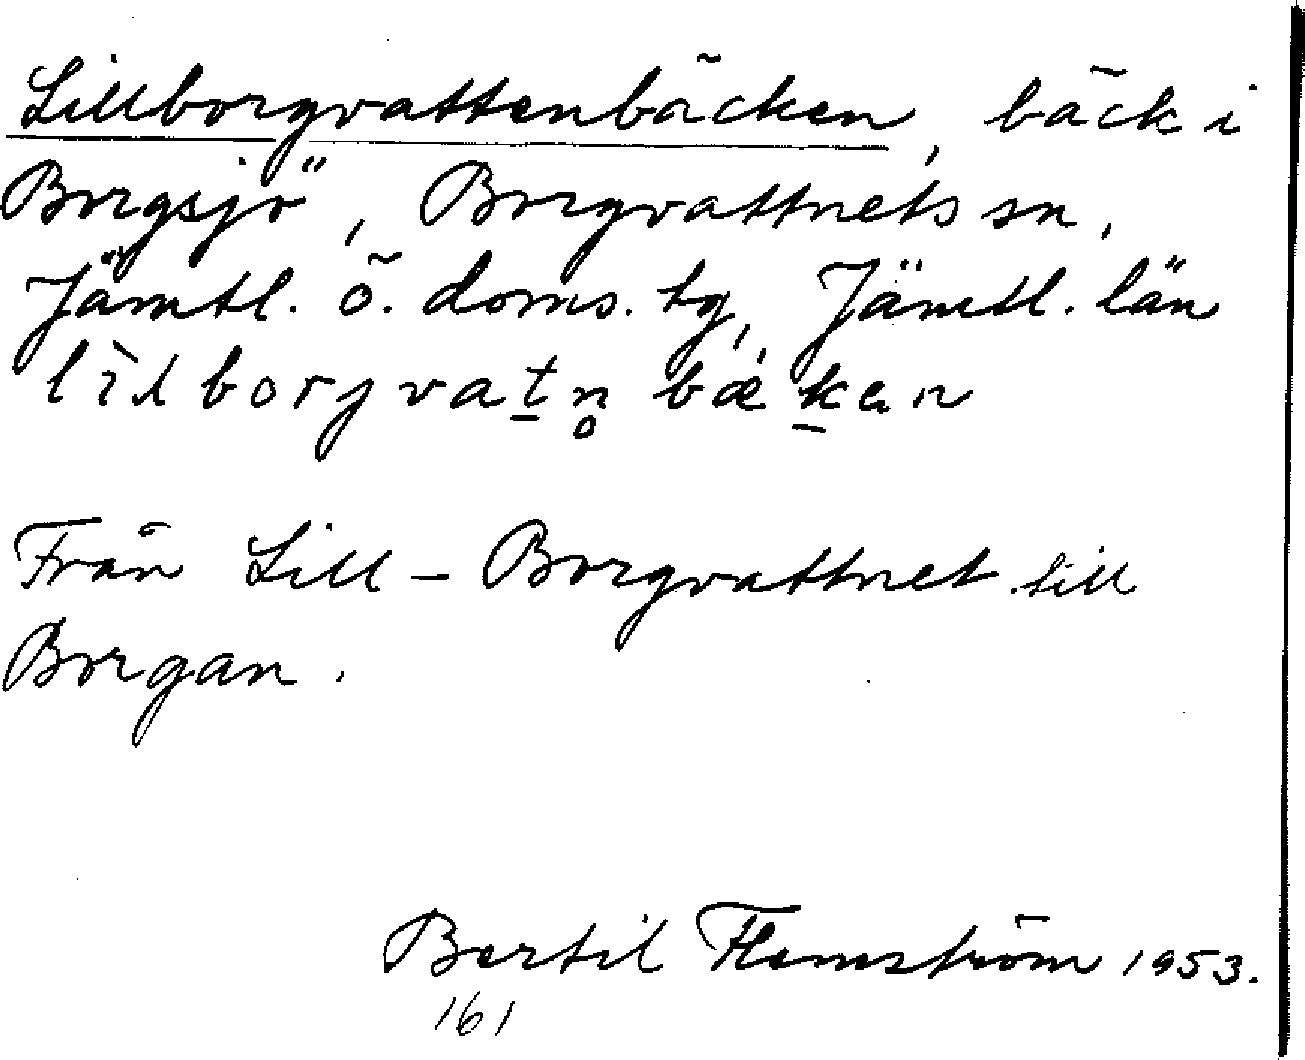 Lillborgvattenbäcken, bäck i
Borgsjö, Borgvattnets sn,
Jämtl. ö. doms. tg, Jämtl. län
lìlborjvat̲n̥bæk̲en
Från Lill-Borgvattnet till
Borgan.
Bertil Flemström 1953.
161